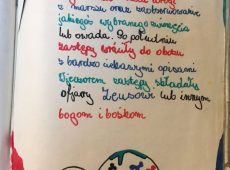 z marszu oraz zaobserwowanie
jakiegoś wybranego zwierzęcia
lub owada. Po południu
zastępy wróciły do obozu
z bardzo ciekawymi opisami
Wieczorem zastępy składały
ofiary Zeusowi lub innym
bogom i boskom